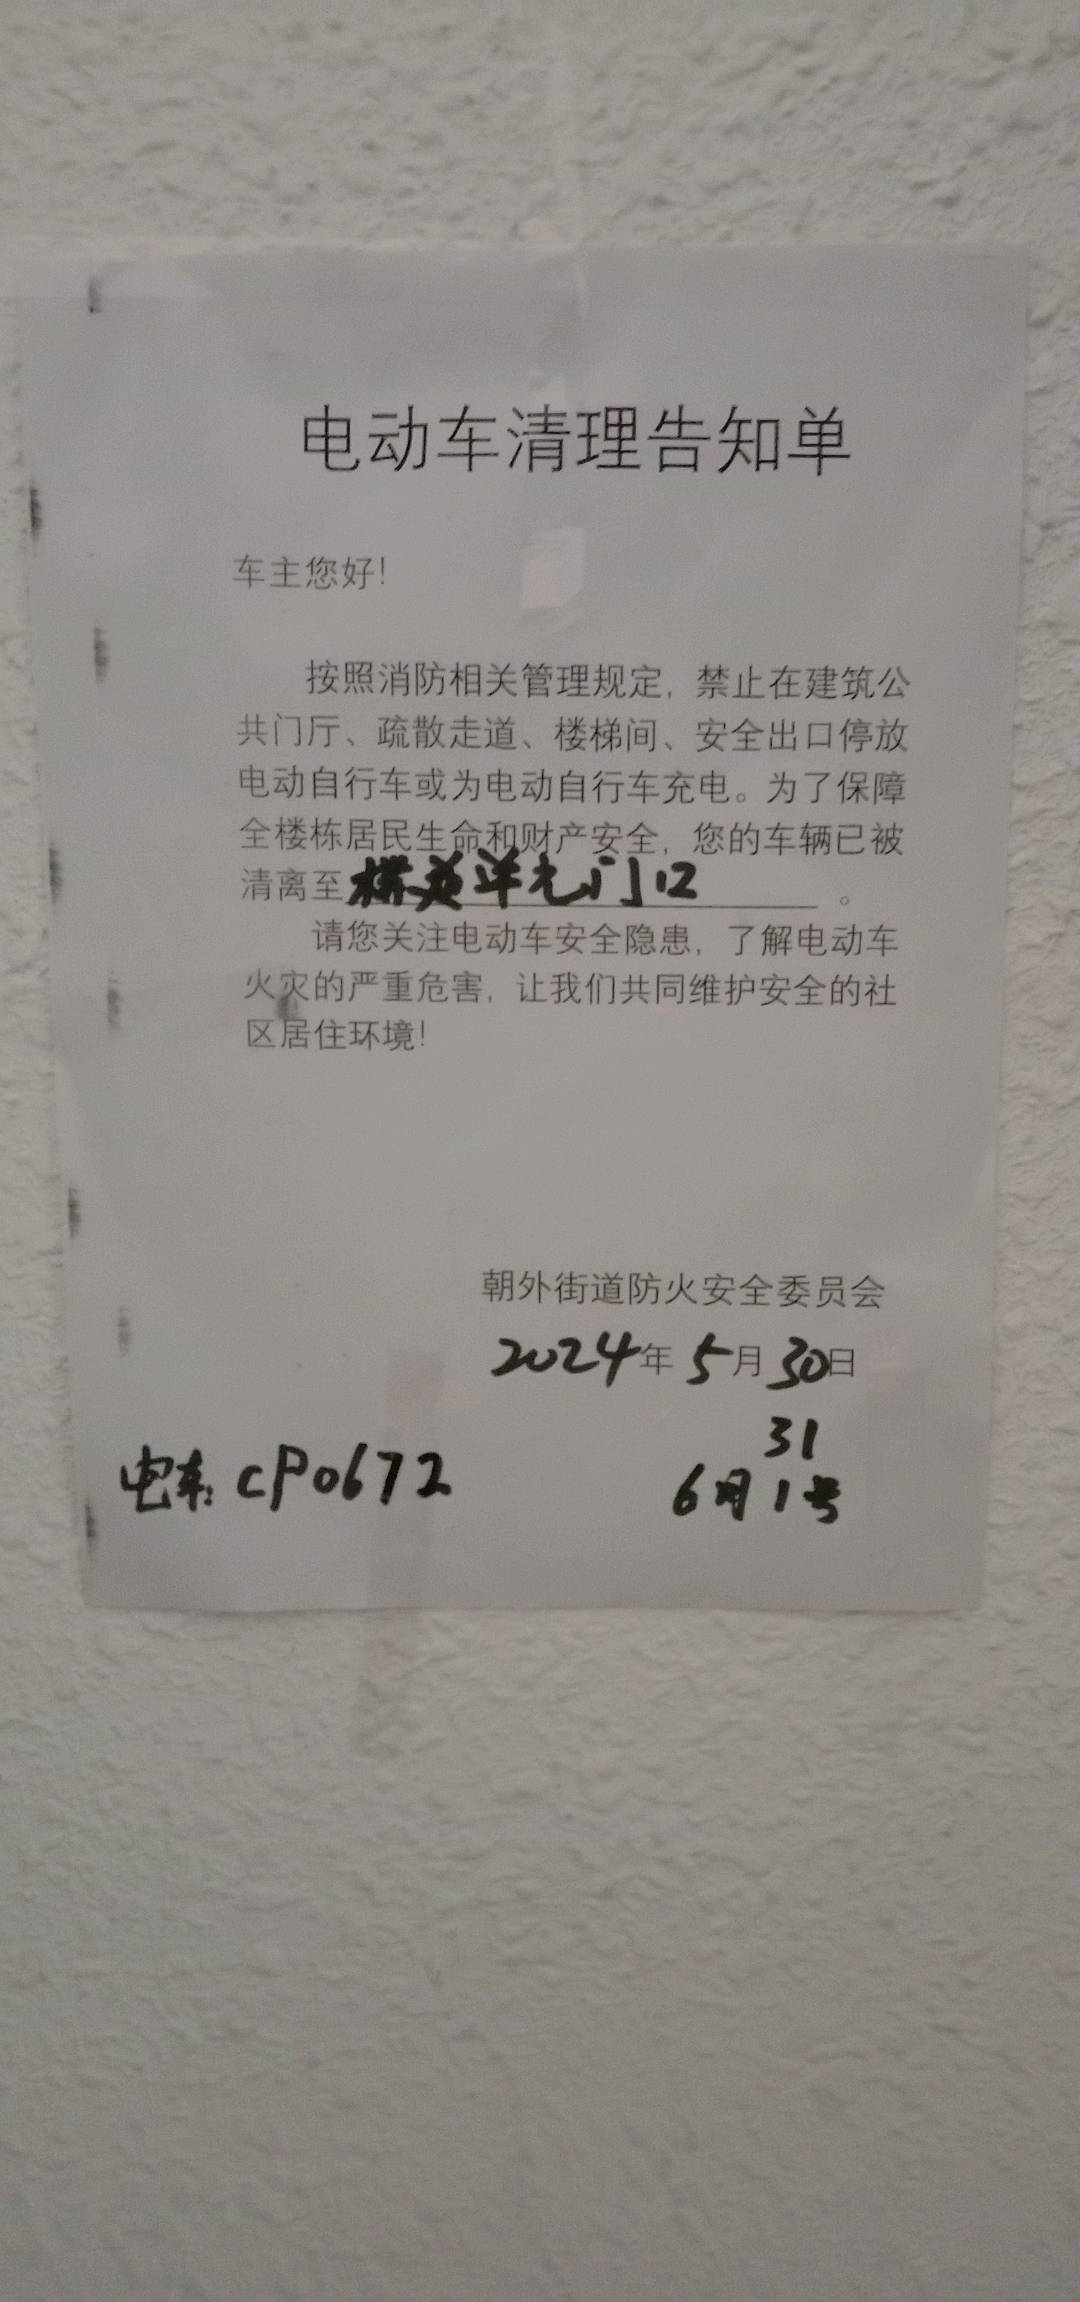 电动车清理告知单
车主您好!
按照消防相关管理规定，禁止在建筑公
共门厅、疏散走道、楼梯间、安全出口停放
电动自行车或为电动自行车充电。为了保障
全楼栋居民生命和财产安全，您的车辆已被
清离至 单元门口 。
请您关注电动车安全隐患，了解电动车
火灾的严重危害，让我们共同维护安全的社
区居住环境!
朝外街道防火安全委员会
2024年5月30日
31
电车: CP0672 6月1号